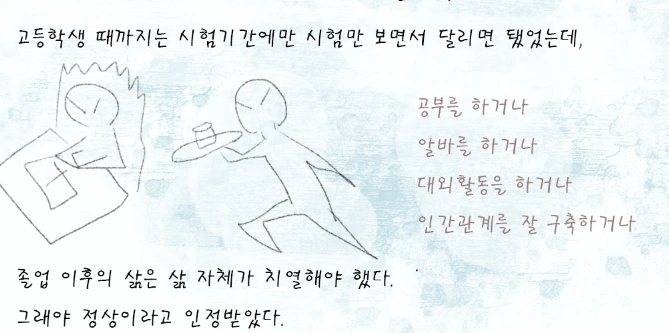 고등학생 때까지는 시험기간에만 시험만 보면서 달리면 됐었는데,
공부를 하거나
알바를 하거나
대외활동을 하거나
인간관계를 잘 구축하거나
졸업 이후의 삶은 삶 자체가 치열해야 했다.
그래야 정상이라고 인정받았다.